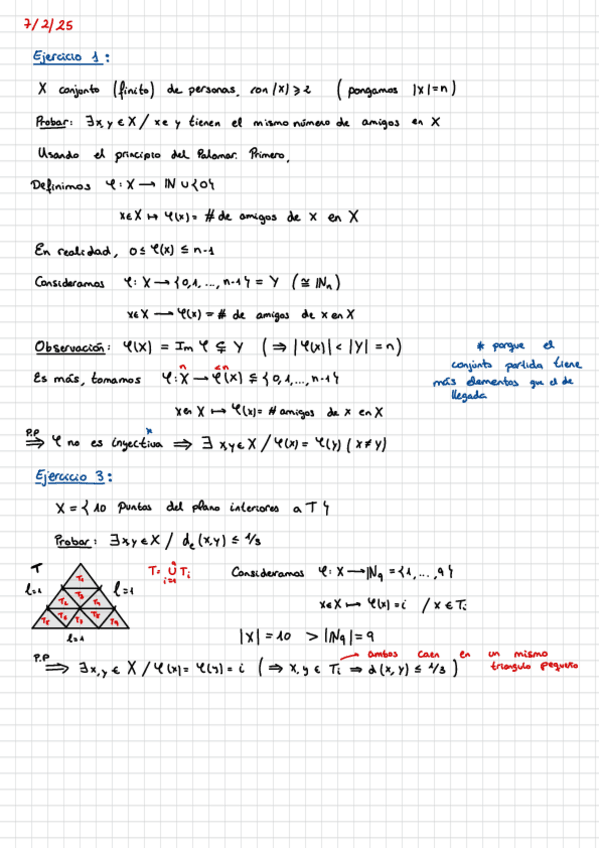 7/2/25
Ejercicio 1:
X conjunto (finito) de personas, con |X| ⩾ 2 (pongamos |X|=n)
Probar: ∃x,y ∈ X / x e y tienen el mismo número de amigos en X
Usando el principio del Palomar. Primero,
Definimos φ: X → ℕ ∪ {0}
x∈X ↦ φ(x) = # de amigos de x en X
En realidad, 0 ≤ φ(x) ≤ n-1
Consideramos φ: X → {0,1,...,n-1} = Y (≅ ℕₙ)
x∈X → φ(x) = # de amigos de x en X
Observación: φ(X) = Im φ ⊊ Y (⇒ |φ(X)| < |Y| = n)
* porque el
conjunto partida tiene
más elementos que el de
llegada
n <n
Es más, tomamos φ: X → φ(X) ⊊ {0,1,...,n-1}
x en X ↦ φ(x) = # amigos de x en X
P.P *
⇒ φ no es inyectiva ⇒ ∃ x,y ∈ X / φ(x) = φ(y) (x ≠ y)
Ejercicio 3:
X = { 10 puntos del plano interiores a T }
Probar: ∃x,y ∈ X / dₑ(x,y) ≤ 1/3
T l=1 l=1 l=1
T₁ T₂ T₃ T₄ T₅ T₆ T₇ T₈ T₉
T = ⋃ᵢ₌₁⁹ Tᵢ
Consideramos φ: X → ℕ₉ = {1,...,9}
x∈X ↦ φ(x) = i / x ∈ Tᵢ
|X| = 10 > |ℕ₉| = 9
P.P
⇒ ∃x,y ∈ X / φ(x) = φ(y) = i (⇒ x,y ∈ Tᵢ ⇒ d(x,y) ≤ 1/3)
→ ambos caen en un mismo
triangulo pequeño